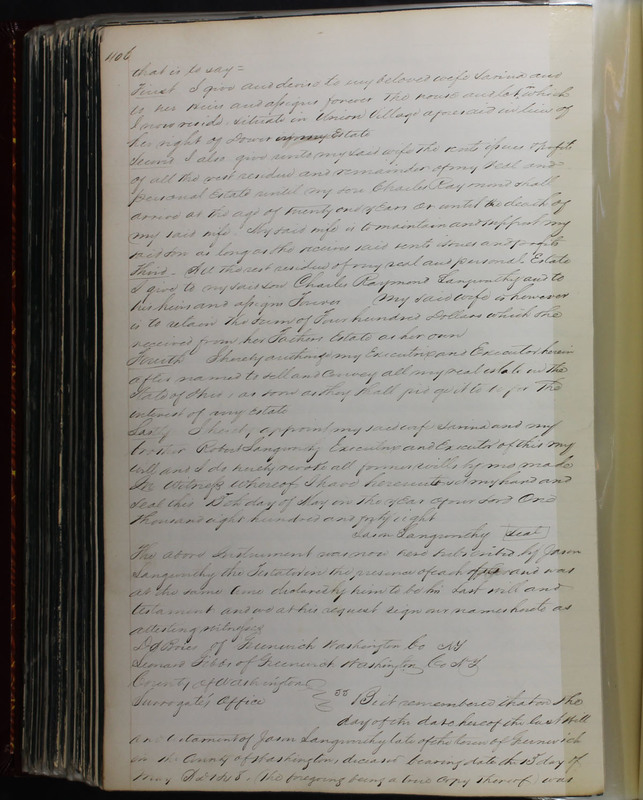 406
that is to say =
First I give and devise to my beloved wife Lavina and
to her heirs and assigns forever The house and lot in which
I now reside situate in Union Village aforesaid in lieu of
her right of Dower in my Estate
Second I also give unto my said wife the rents issues & profits
of all the rest residue and remainder of my Real and
personal Estate until my son Charles Raymond shall
arrive at the age of twenty one years or until the death of
my said wife. My said wife is to maintain and support my
said son as long as she receives said rents issues and profits
Third. All the rest residue of my real and personal Estate
I give to my said son Charles Raymond Langworthy and to
his heirs and assigns Forever My said wife is however
is to retain the sum of Four hundred Dollars which she
received from her Fathers Estate as her own
Fourth I hereby authorize my Executrix and Executor herein
after named to sell and convey all my real estate in the
State of Ohio, as soon as they shall judge it to be for The
interest of my estate
Lastly I hereby appoint my said wife Lavina and my
brother Robert Langworthy Executrix and Executor of this my
will and I do hereby revoke all former wills by me made
In Witness whereof I have hereunto set my hand and
seal this 15th day of May in the year of our Lord One
thousand eight hundred and forty eight
Jason Langworthy Seal
The above Instrument was now here subscribed by Jason
Langworthy the Testator in the presence of each of us and was
at the same time declared by him to be his last will and
testament and we at his request sign our names hereto as
attesting witnesses
of Greenwich Washington Co NY
Leonard Gibbs of Greenwich Washington Co NY
County of Washington
Surrogate's Office ss Be it remembered that on the
day of the date hereof the last Will
and testament of Jason Langworthy late of the town of Greenwich
in the County of Washington deceased bearing date the 15 day of
May (the foregoing being a true copy thereof) was